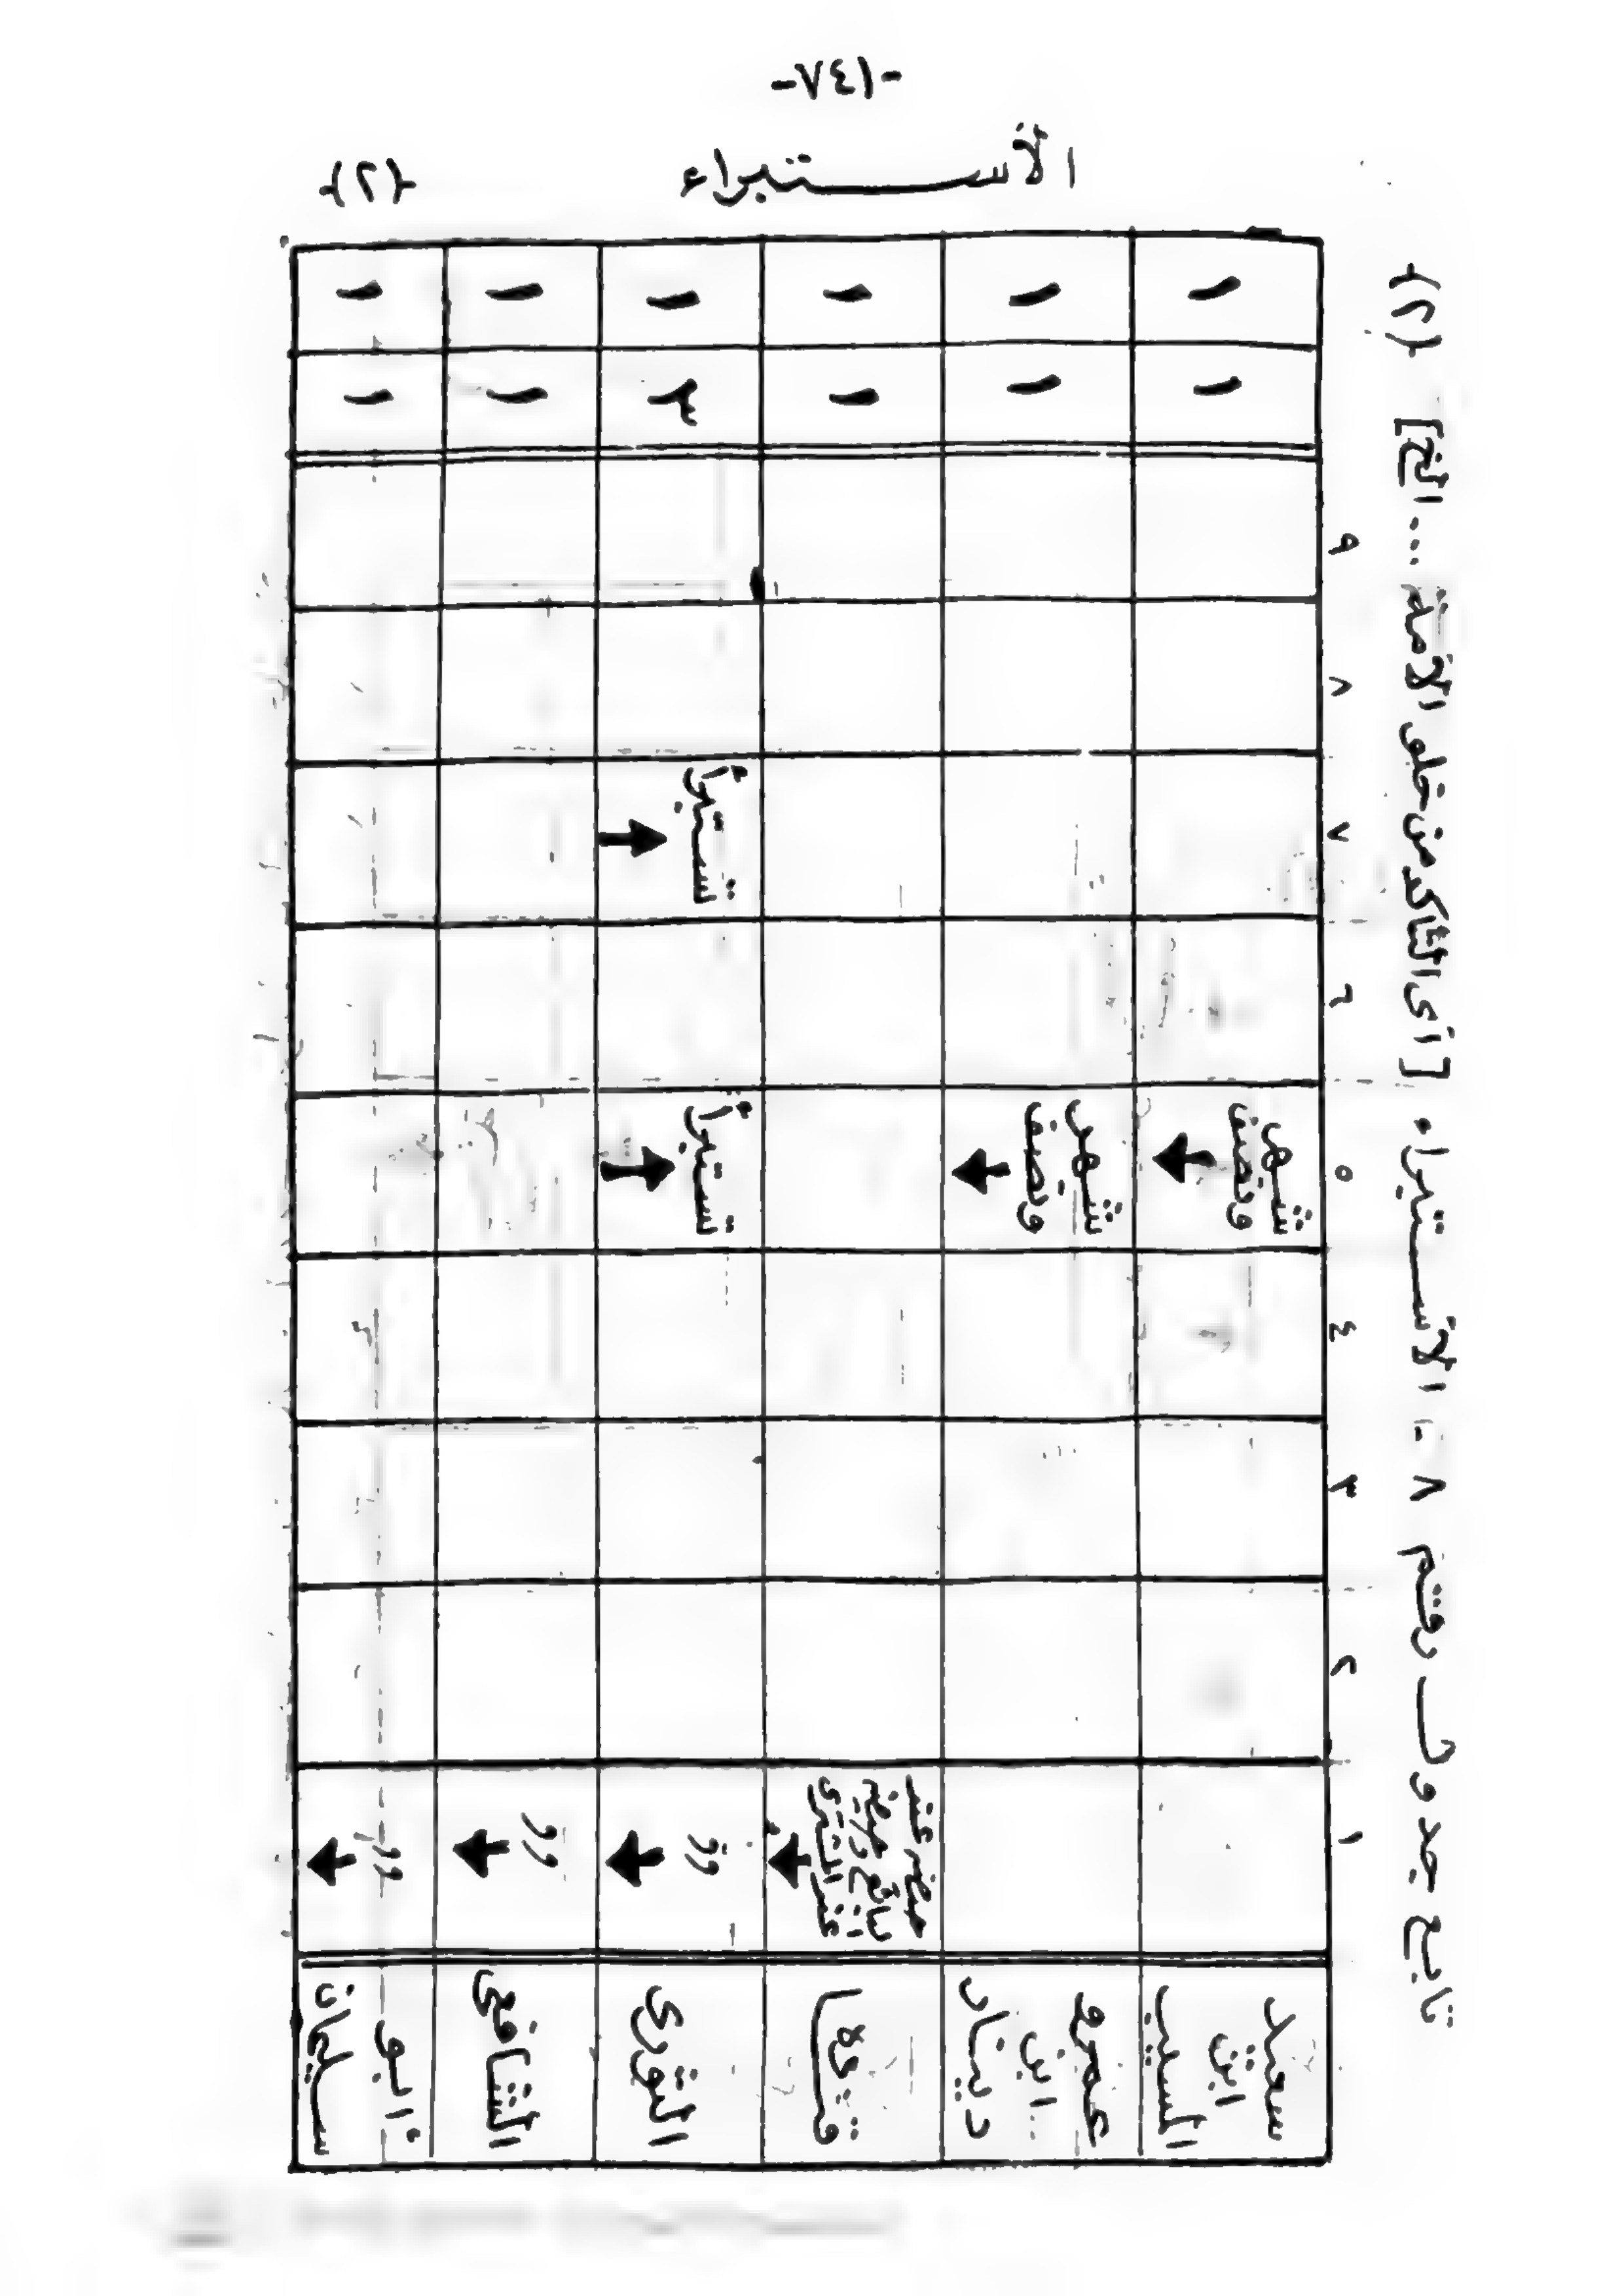 -١٤٧-
الأستبراء
{٢}
تابع جدول رقم ٨ - الأستبراء [أى التأكد من خلو الأمة ... الخ] {٢}
١ ٢ ٣ ٤ ٥ ٦ ٧ ٨ ٩
سعيد
ابن
المسيب
شهر
ونصف
١
١
عمرو
ابن
دينار
شهر
ونصف
١
١
قتادة
حيضه عند
البائع وحيضه
عند المشترى
١
١
الثورى
"
تستبرأ
تستبرأ
٣
١
الشافعى
"
١
١
أبو
سليمان
"
١
١